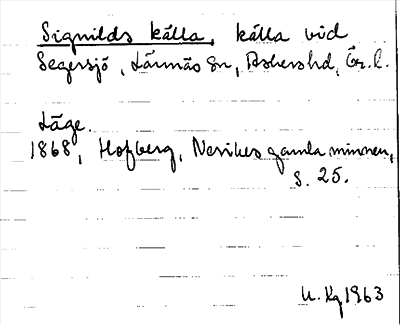 Signilds källa, källa vid
Segersjö, Lännäs sn, Askers hd, Ör. l.
Läge.
1868, Hofberg, Nerikes gamla minnen,
s. 25.
1963